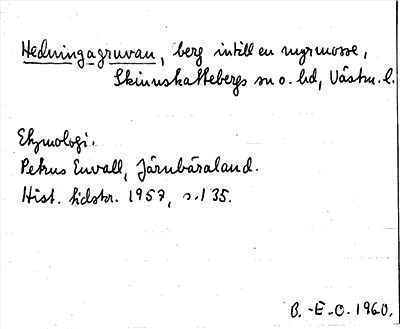 Hedningagruvan, berg intill en myrmosse,
Skinnskattebergs sn o. hd, Västm. l.
Etymologi.
Petrus Envall, Järnbäraland.
Hist. tidskr. 1957, s. 135.
B.-E.O. 1960.